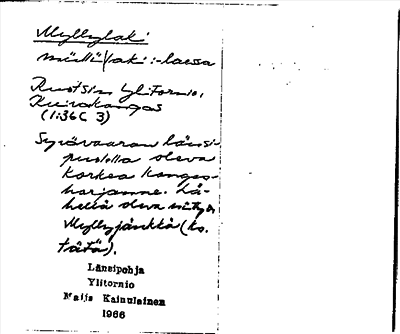 Myllylaki
mü̬llü̬laki: -laessa
Ruotsin Ylitornio,
Kuivakangas
(1:36C 3)
Syvävaaran länsi-
puolella oleva
korkea kangas-
harjanne. Lä-
hellä oleva niitty on
Myllyjänkkä (ks.
tätä).
Länsipohja
Ylitornio
Maija Kainulainen
1966